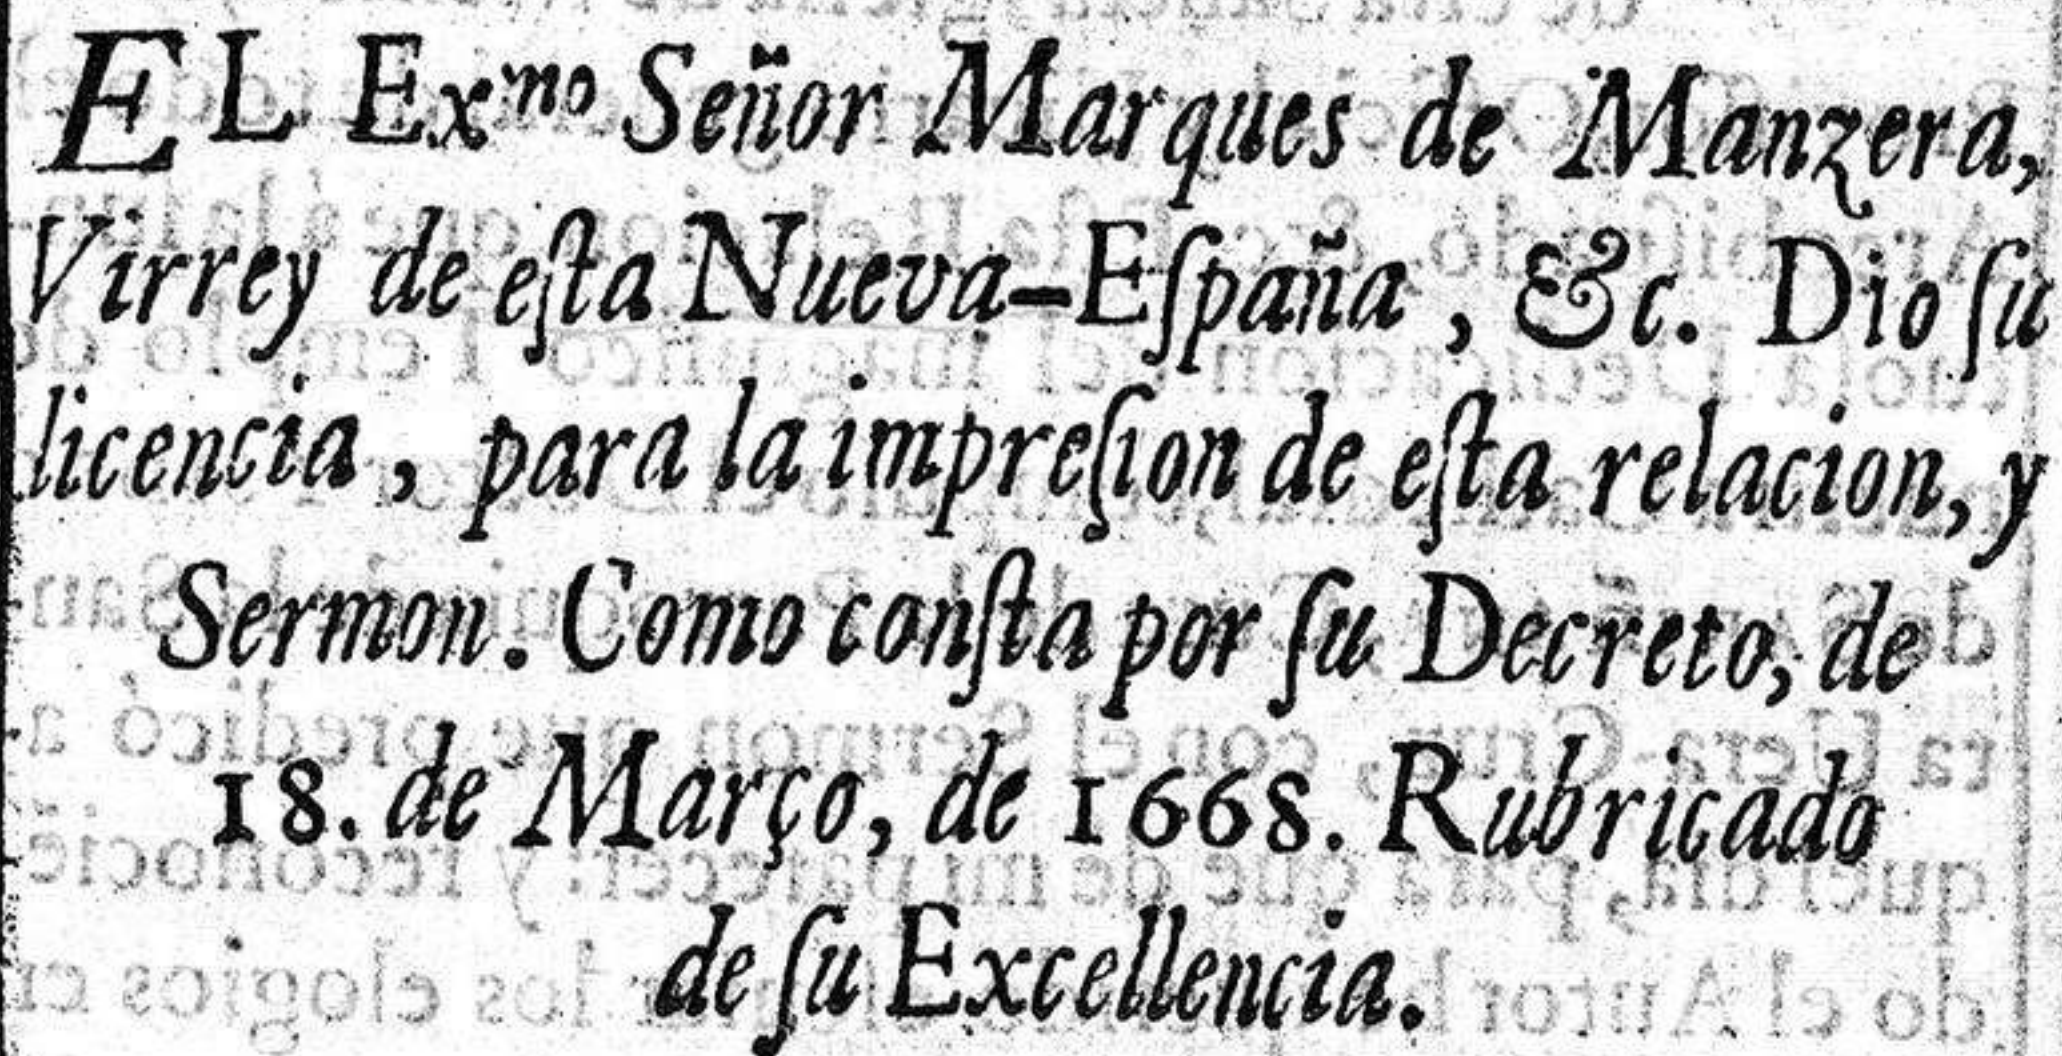 EL Exᵐᵒ Señor Marques de Manzera,
Virrey de eſta Nueva-Eſpaña, &c. Dio ſu
licencia, para la impreſion de eſta relacion, y
Sermon. Como conſta por ſu Decreto, de
18. de Março, de 1668. Rubricado
de ſu Excellencia.